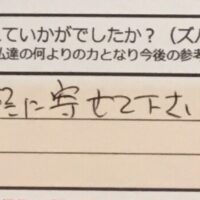 ていかがでしたか？（ズバ
私達の何よりの力となり今後の参考
軽に寄せて下さい